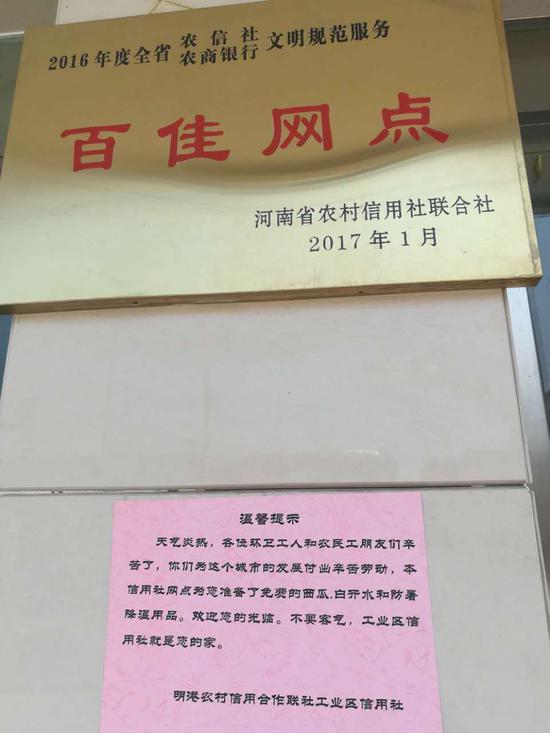 2016年度全省农信社农商银行文明规范服务
百佳网点
河南省农村信用社联合社
2017年1月
温馨提示
天气炎热，各位环卫工人和农民工朋友们辛
苦了，你们为这个城市的发展付出辛苦劳动，本
信用社网点为您准备了免费的西瓜.白开水和防暑
降温用品。欢迎您的光临。不要客气，工业区信
用社就是您的家。
明港农村信用合作联社工业区信用社